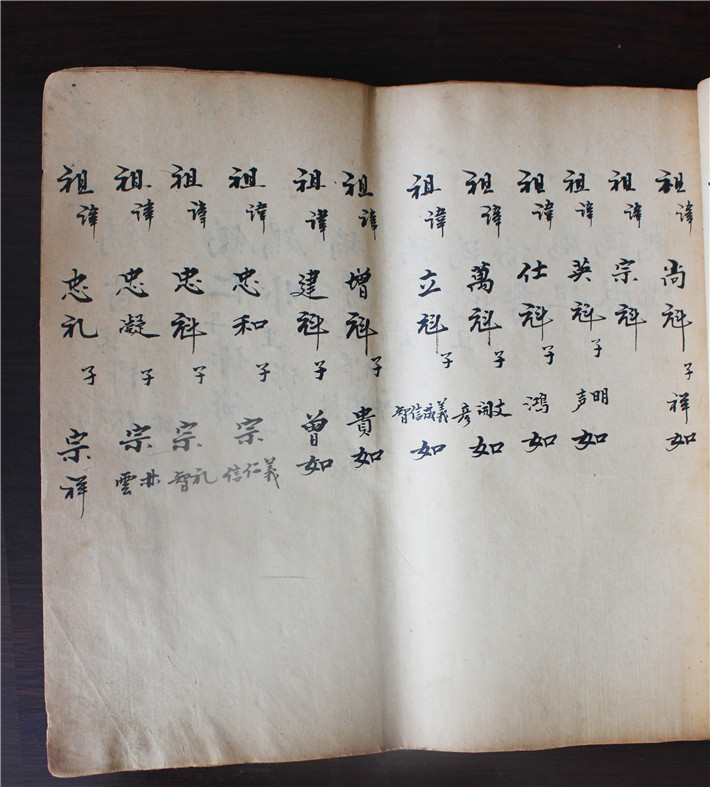 祖諱尚科子祥如
祖諱宗科
祖諱英科子明声如
祖諱仕科子鴻如
祖諱萬科子文開彦如
祖諱立科子義成信智如
祖諱增科子貴如
祖諱建科子曾如
祖諱忠和子宗義仁信
祖諱忠科子宗礼智
祖諱忠凝子宗雲
祖諱忠礼子宗祥